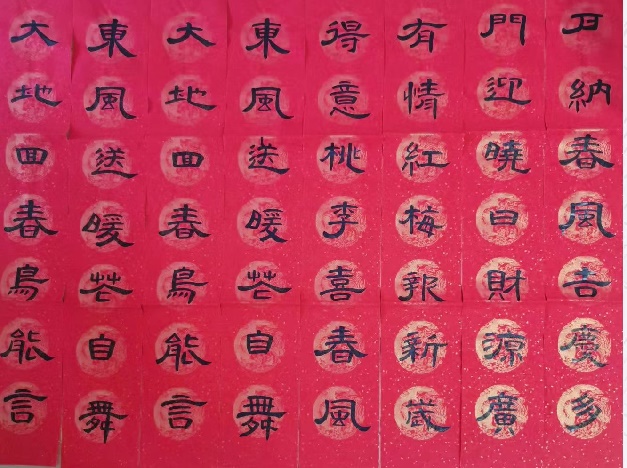 戶納春風吉慶多
門迎曉日財源廣
有情紅梅報新歲
得意桃李喜春風
東風送暖花自舞
大地回春鳥能言
東風送暖花自舞
大地回春鳥能言